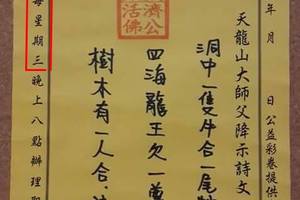 年 月 日公益彩卷提供
天龍山大師父降示詩文
濟公活佛
洞中一隻牛合一尾
四海龍王欠一
樹木有一人合
每星期三晚上八點辦理